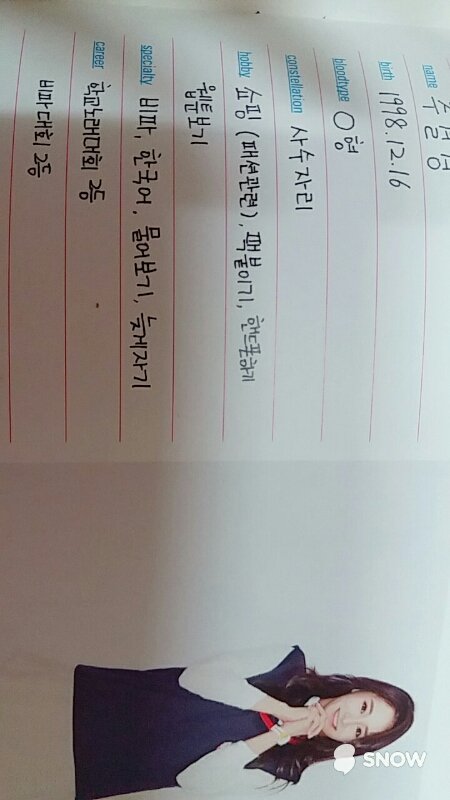 name 주결경
birth 1998.12.16
bloodtype O형
constellation 사수자리
hobby 쇼핑 (패션관련), 팩붙이기, 핸드폰하기
웹툰보기
specialty 비파, 한국어, 물어보기, 늦게자기
career 학교노래대회 2등
비파대회 2등
SNOW